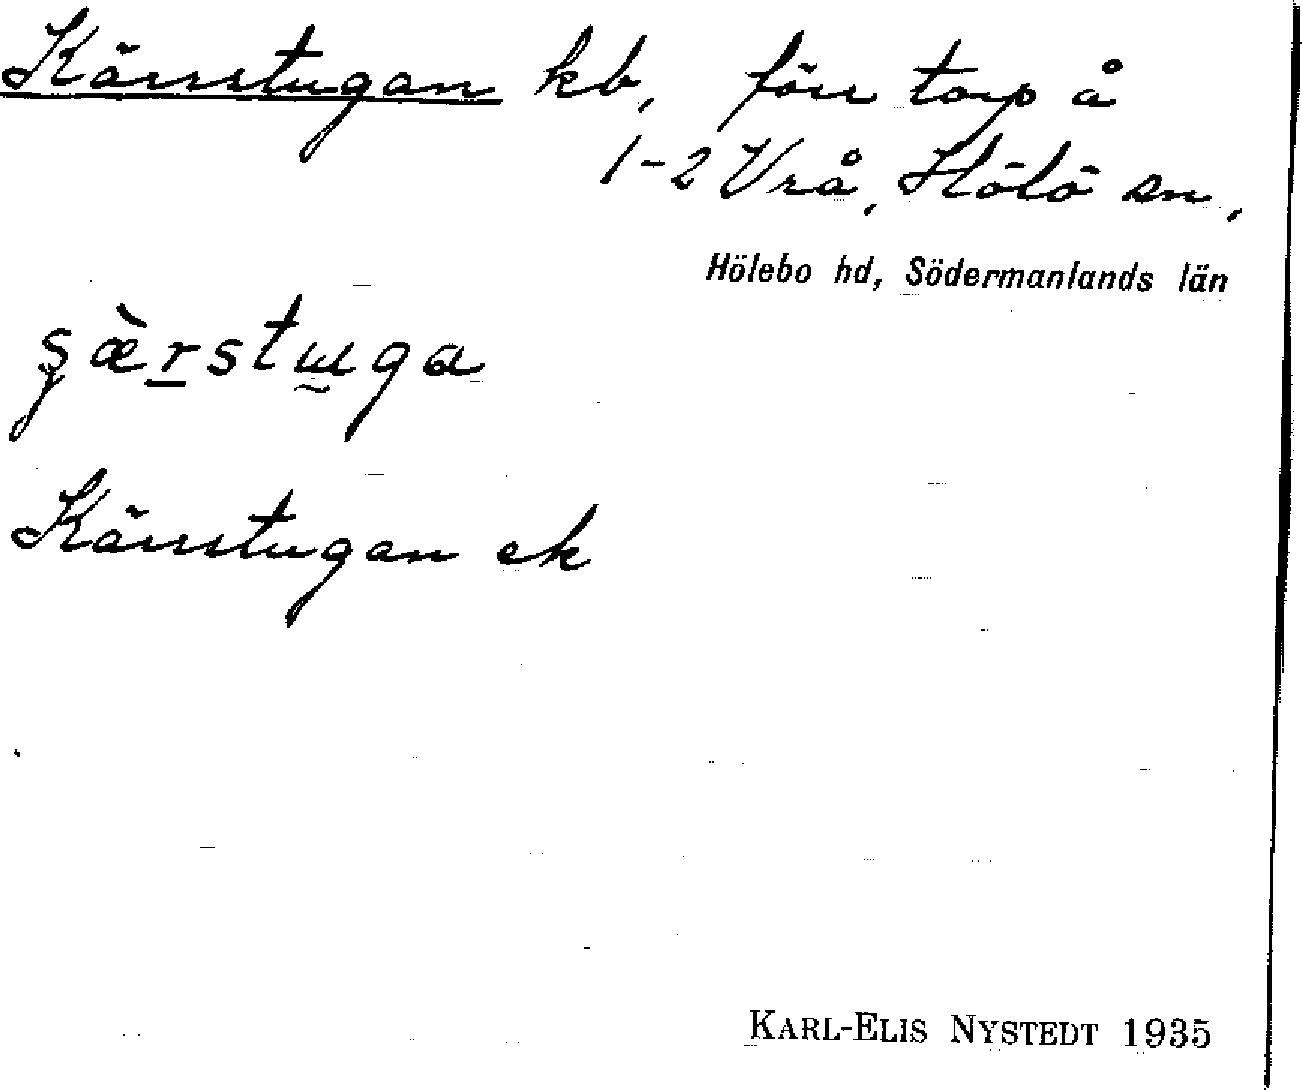 Kärrstugan kb, förr torp å
1-2 Vrå, Hölö sn,
Hölebo hd, Södermanlands län
Kärrstugan ek
KARL-ELIS NYSTEDT 1935